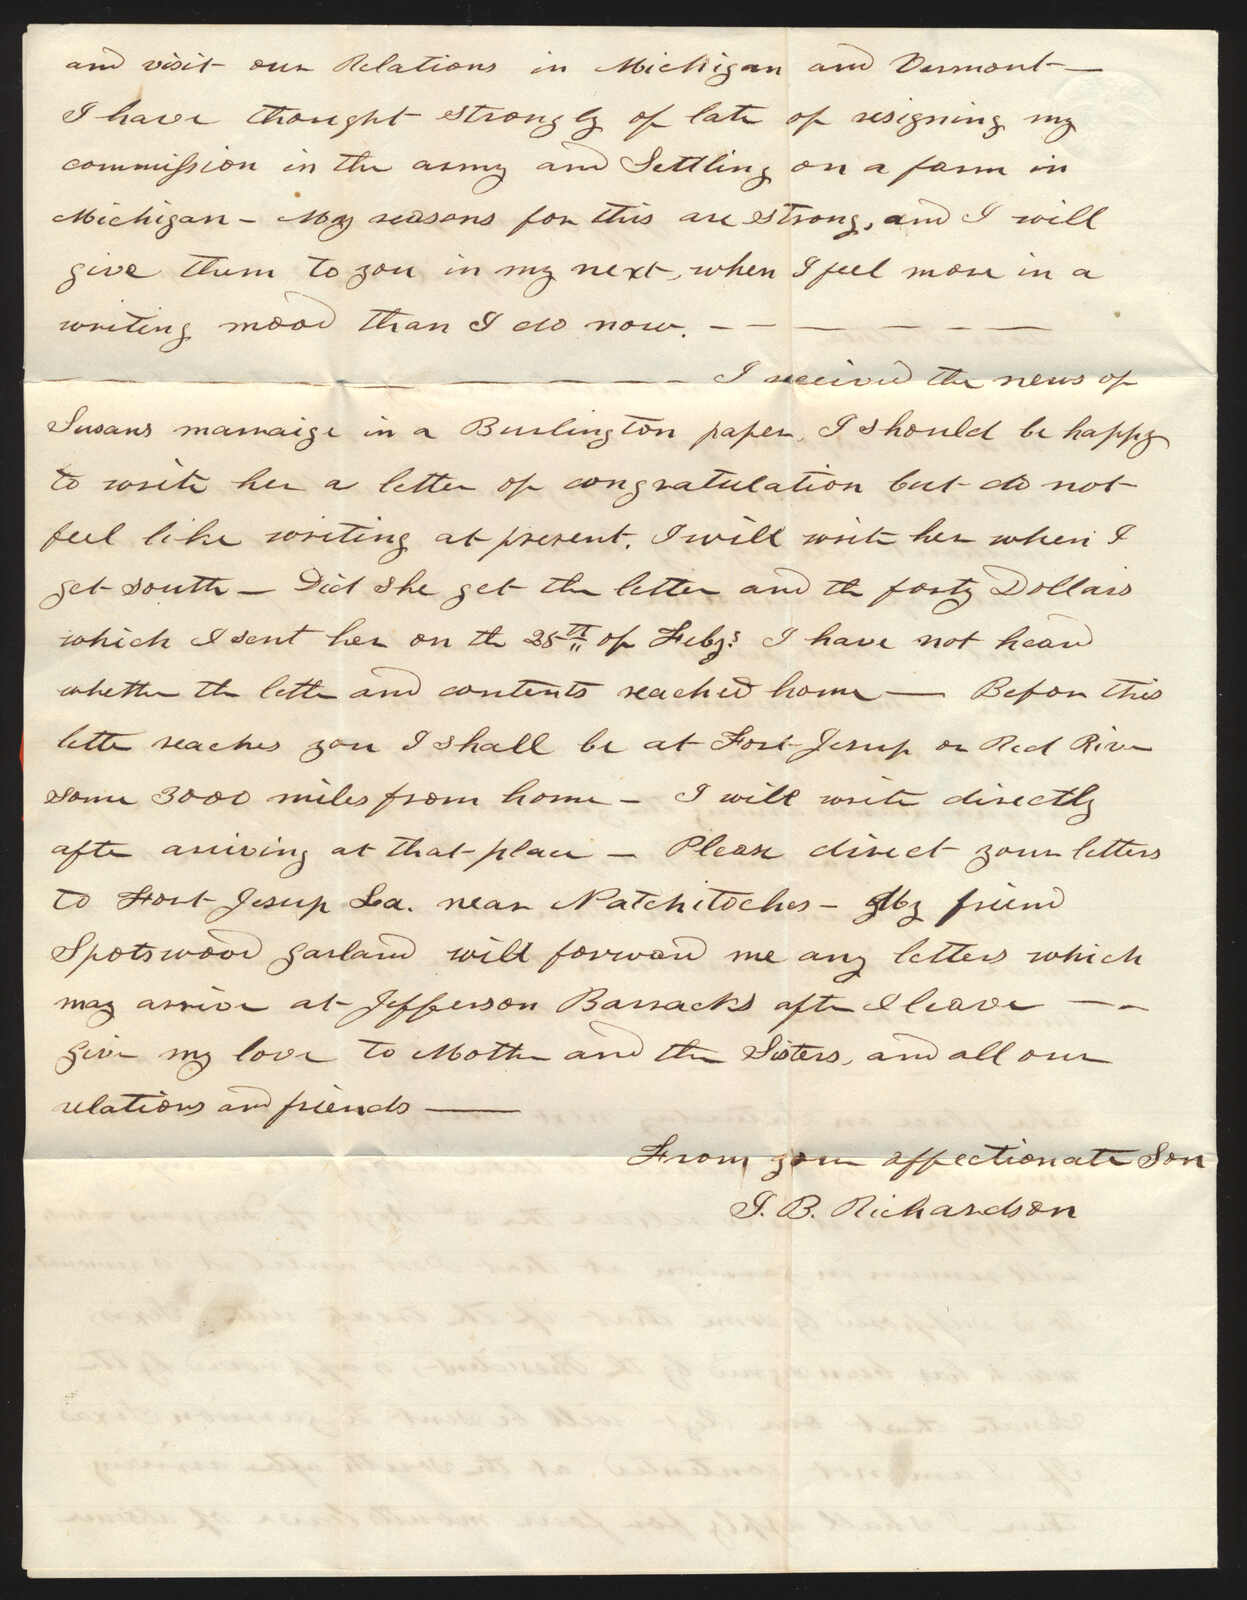 and visit our Relations in Michigan and Vermont —
I have thought strongly of late of resigning my
commission in the army and Settling on a farm in
Michigan – My reasons for this are strong, and I will
give them to you in my next, when I feel more in a
writing mood than I do now. – – — – – —
— – – – – – – – – I received the news of
Susans marraige in a Burlington paper, I should be happy
to write her a letter of congratulation but do not
feel like writing at present. I will write her when I
get south – Did she get the letter and the forty Dollars
which I sent her on the 28th of Feby? I have not heard
whether the letter and contents reached home — Before this
letter reaches you I shall be at Fort Jesup on Red River
some 3000 miles from home – I will write directly
after arriving at that place – Please direct your letters
to Fort Jesup La. near Natchitoches – My friend
Spotswood Garland will forward me any letters which
may arrive at Jefferson Barracks after I leave – –
give my love to Mother and the Sisters, and all our
relations and friends —
From your affectionate Son
I. B. Richardson